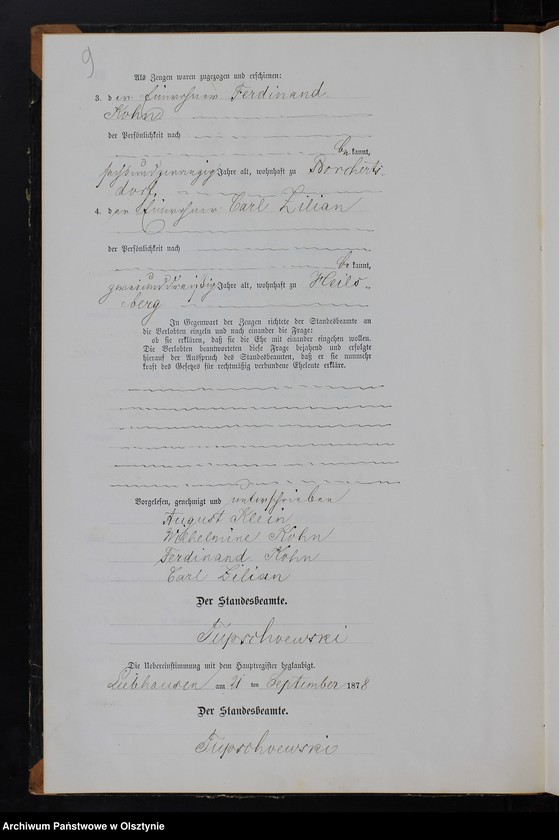 9
Als Zeugen waren zugezogen und erschienen:
3. der Einwohner Ferdinand
Kohn
der Persönlichkeit nach
be kannt,
sechsundzwanzig Jahre alt, wohnhaft zu Borcherts-
dorf.
4. der Einwohner Carl Zilian
der Persönlichkeit nach
be kannt,
zweiunddreißig Jahre alt, wohnhaft zu Heils-
berg
In Gegenwart der Zeugen richtete der Standesbeamte an
die Verlobten einzeln und nach einander die Frage:
ob sie erklären, daß sie die Ehe mit einander eingehen wollen.
Die Verlobten beantworteten diese Frage bejahend und erfolgte
hierauf der Ausspruch des Standesbeamten, daß er sie nunmehr
kraft des Gesetzes für rechtmäßig verbundene Eheleute erkläre.
Vorgelesen, genehmigt und unterschrieben
August Klein
Wilhelmine Kohn
Ferdinand Kohn
Carl Zilian
Der Standesbeamte.
Die Uebereinstimmung mit dem Hauptregister beglaubigt.
am 21 ten September 1878
Der Standesbeamte.
Archiwum Państwowe w Olsztynie